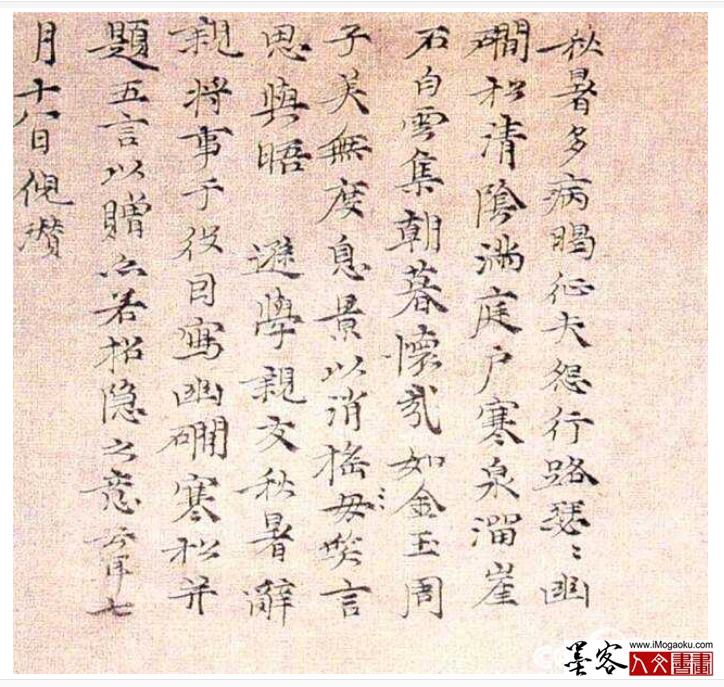 秋暑多病暍征夫怨行路瑟〻幽
磵松清陰滿庭戶寒泉溜崖
石白雲集朝暮懷哉如金玉周
子美無度息景以消搖毋笑言
思與晤 遜學親友秋暑辭
親將事于役因寫幽磵寒松并
題五言以贈亦若招隱之意云耳七
月十八日倪瓚
墨客
www.iMogaoku.com
人文書畫